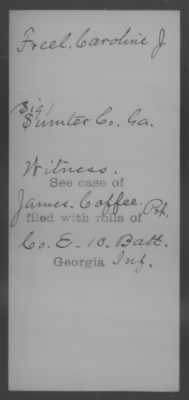 Freel. Caroline J
Sig /
Sumter Co. Ga.
Witness.
See case of
James. Coffee. Pvt.
filed with rolls of
Co. E - 10. Batt.
Georgia Inf.